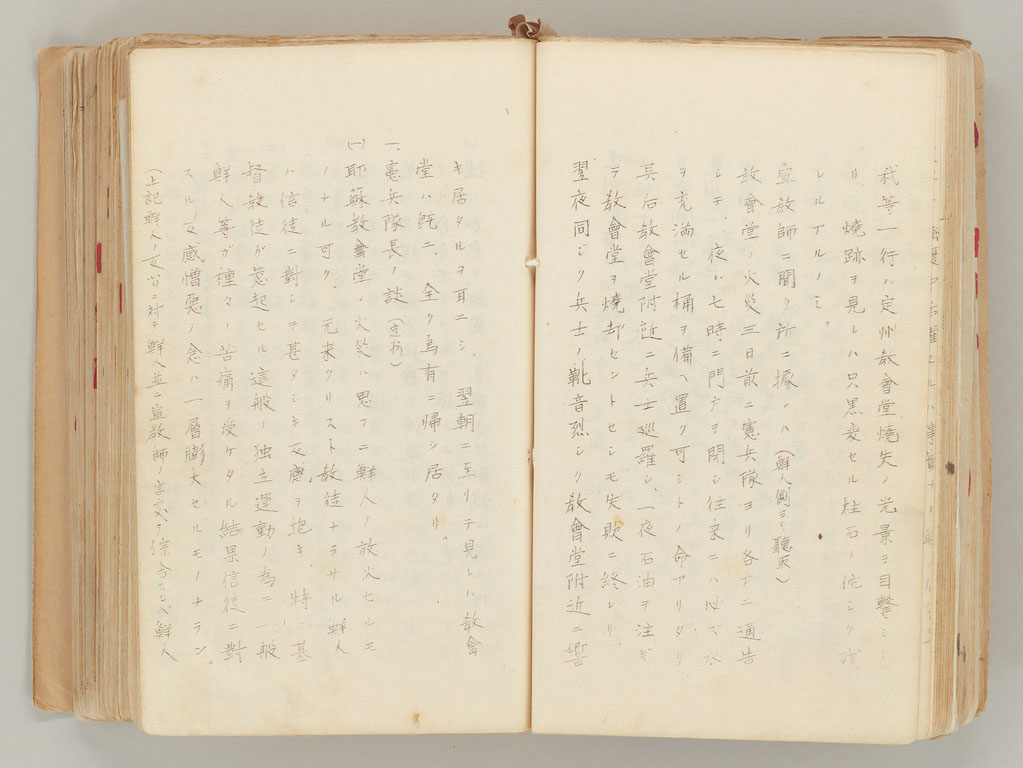 我等一行ハ定州教會堂焼失ノ光景ヲ目撃シ
リ、焼跡ヲ見レハ只黒変セル柱石ノ佗シク残
レルアルノミ
宣教師ニ聞ク所ニ據レハ(鮮人側ヨリ聴取)
教會堂ノ火災三日前ニ憲兵隊ヨリ各戸ニ通告
シテ、夜ハ七時ニ門戸ヲ閉シ往来ニハ必ズ水
ヲ充満セル桶ヲ備ヘ置ク可シトノ命アリタリ
其后教會堂附近ニ兵士巡羅シ、一夜石油ヲ注ギ
テ教會堂ヲ焼却セントセシモ失敗ニ終レリ、
翌夜同ジク兵士ノ靴音烈シク教會堂附近ニ響
キ居タルヲ耳ニシ、翌朝ニ至リテ見レハ教會
堂ハ既ニ、全ク烏有ニ帰シ居タリ。
一、憲兵隊長ノ談(定州)
(一)耶蘇教會堂ノ火災ハ思フニ鮮人ノ放火セルモ
ノナル可ク、元来クリスト教徒ナラサル鮮人
ハ信徒ニ對シヲ甚タシキ反感ヲ抱キ、特ニ基
督教徒ガ惹起セル這般ノ独立運動ノ為ニ一般
鮮人等ガ種々ノ苦痛ヲ受ケタル結果信徒ニ對
スルノ反感憎悪ノ念ハ一層膨大セルモノナラン。
(上記鮮人ノ言分ニ対テ鮮人並ニ宣教師ノ言ヲ綜合シレバ鮮人